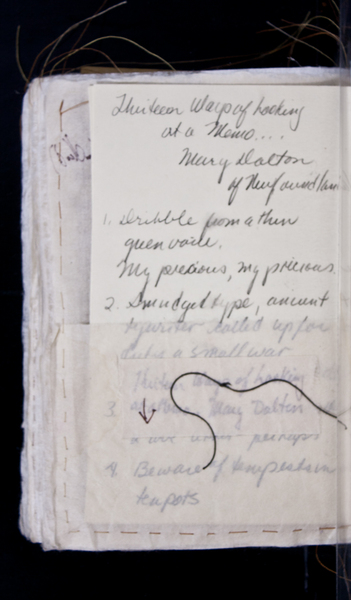 Thirteen Ways of Looking
at a Memo...
Mary Dalton
of Newfoundland
1. Dribble from a thin
queen voice.
My precious, my precious.
2. Smudged type, ancient
typewriter called up for
a small war
Thirteen Ways of Looking
3. Mary Dalton
perhaps
4. Beware of tempests in
teapots